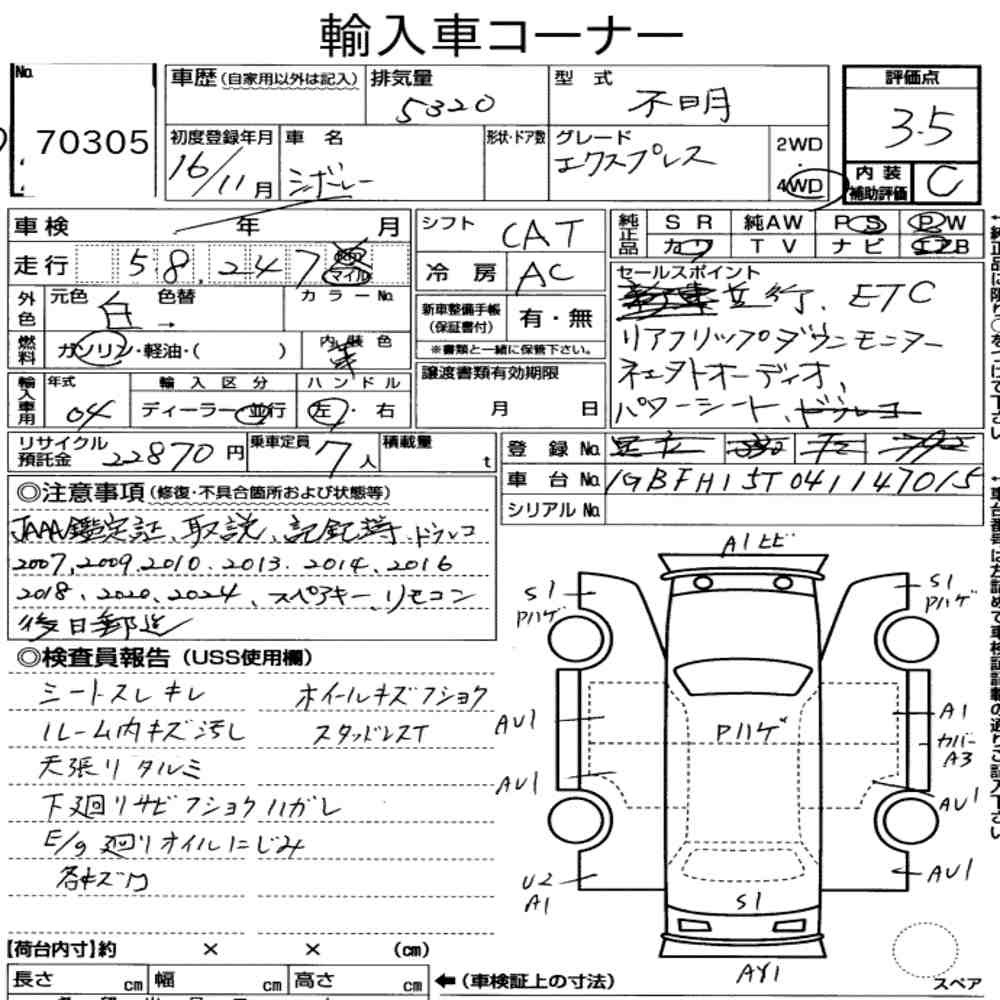 輸入車コーナー
No.
70305
車歴(自家用以外は記入)
排気量
5320
型 式
不明
評価点
3.5
初度登録年月
16/11月
車 名
シボレー
形状・ドア数
グレード
エクスプレス
2WD
・
4WD
内装
補助評価
C
車検 年 月
走行 58,247 マイル
外色
元色 白 色替 →
カラーNo.
燃料
ガソリン・軽油・( )
内装色
輸入車用
年式
04
輸入区分
ディーラー・並行
ハンドル
左・右
シフト
CAT
冷房
AC
新車整備手帳
(保証書付)
有・無
※書類と一緒に保管下さい。
譲渡書類有効期限
月 日
純正品
SR 純AW PS PW
カワ TV ナビ エアB
セールスポイント
並行、ETC
リアフリップダウンモニター
社外オーディオ、
パワーシート、
リサイクル
預託金
22870円
乗車定員
7人
積載量
t
登録No.
車台No.
1GBFH15T041147015
シリアルNo.
◎注意事項(修復・不具合箇所および状態等)
JAAA鑑定証、取説、記録簿、ドラレコ
2007,2009,2010、2013、2014、2016
2018、2020、2024、スペアキー、リモコン
後日郵送
◎検査員報告(USS使用欄)
シートスレキレ
ルーム内キズ汚し
天張リタルミ
下廻リサビフショクハガレ
E/g廻リオイルにじみ
各キズ凹
ホイールキズフショク
スタッドレスT
A1ヒビ
S1
Pハゲ
S1
Pハゲ
AU1
AU1
Pハゲ
A1
カバー
A3
AU1
U2
A1
S1
AU1
AY1
スペア
【荷台内寸】約 × × (cm)
長さ cm 幅 cm 高さ cm
←(車検証上の寸法)